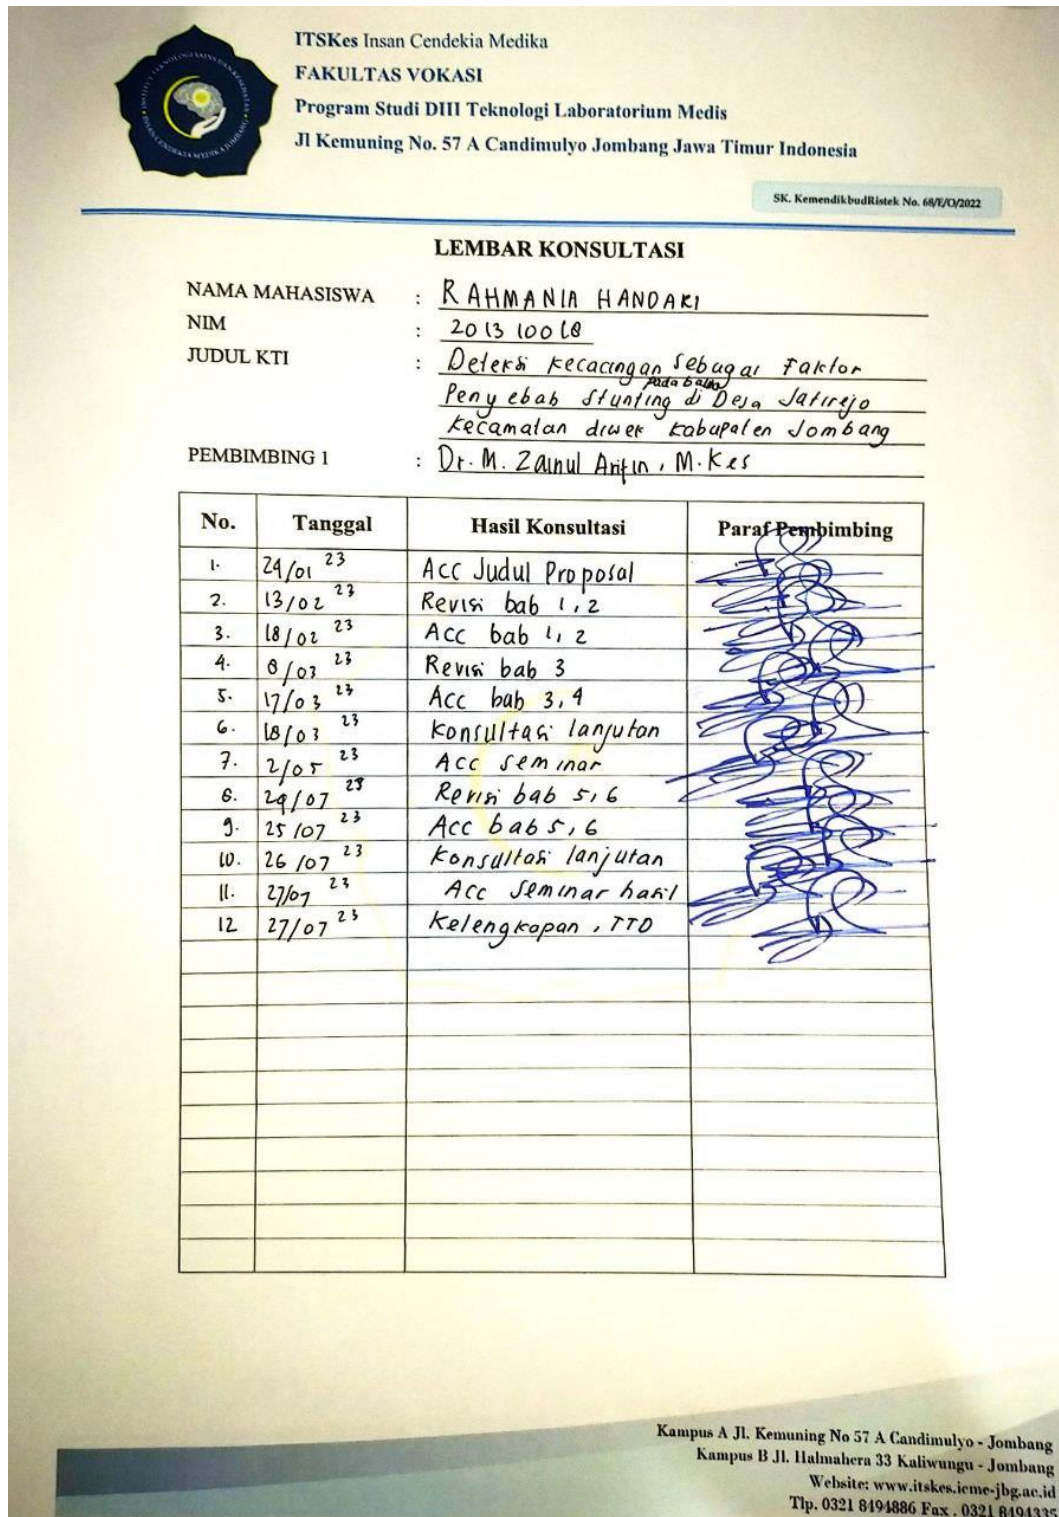 ITSKes Insan Cendekia Medika
FAKULTAS VOKASI
Program Studi DIII Teknologi Laboratorium Medis
Jl Kemuning No. 57 A Candimulyo Jombang Jawa Timur Indonesia
SK. KemendikbudRistek No. 68/E/O/2022
LEMBAR KONSULTASI
NAMA MAHASISWA : RAHMANIA HANDARI
NIM : 201310018
JUDUL KTI : Deteksi kecacingan sebagai Faktor
Penyebab Stunting pada balita di Desa Jatirejo
Kecamatan diwek kabupaten Jombang
PEMBIMBING 1 : Dr. M. Zainul Arifin, M.Kes
No. Tanggal Hasil Konsultasi Paraf Pembimbing
1. 24/01 23 Acc Judul Proposal
2. 13/02 23 Revisi bab 1,2
3. 18/02 23 Acc bab 1, 2
4. 8/03 23 Revisi bab 3
5. 17/03 23 Acc bab 3,4
6. 18/03 23 Konsultasi lanjutan
7. 2/05 23 Acc seminar
8. 24/07 23 Revisi bab 5,6
9. 25/07 23 Acc bab 5,6
10. 26/07 23 Konsultasi lanjutan
11. 27/07 23 Acc Seminar hasil
12 27/07 23 Kelengkapan, TTD
Kampus A Jl. Kemuning No 57 A Candimulyo - Jombang
Kampus B Jl. Halmahera 33 Kaliwungu - Jombang
Website: www.itskes.icme-jbg.ac.id
Tlp. 0321 8494886 Fax . 0321 8494335